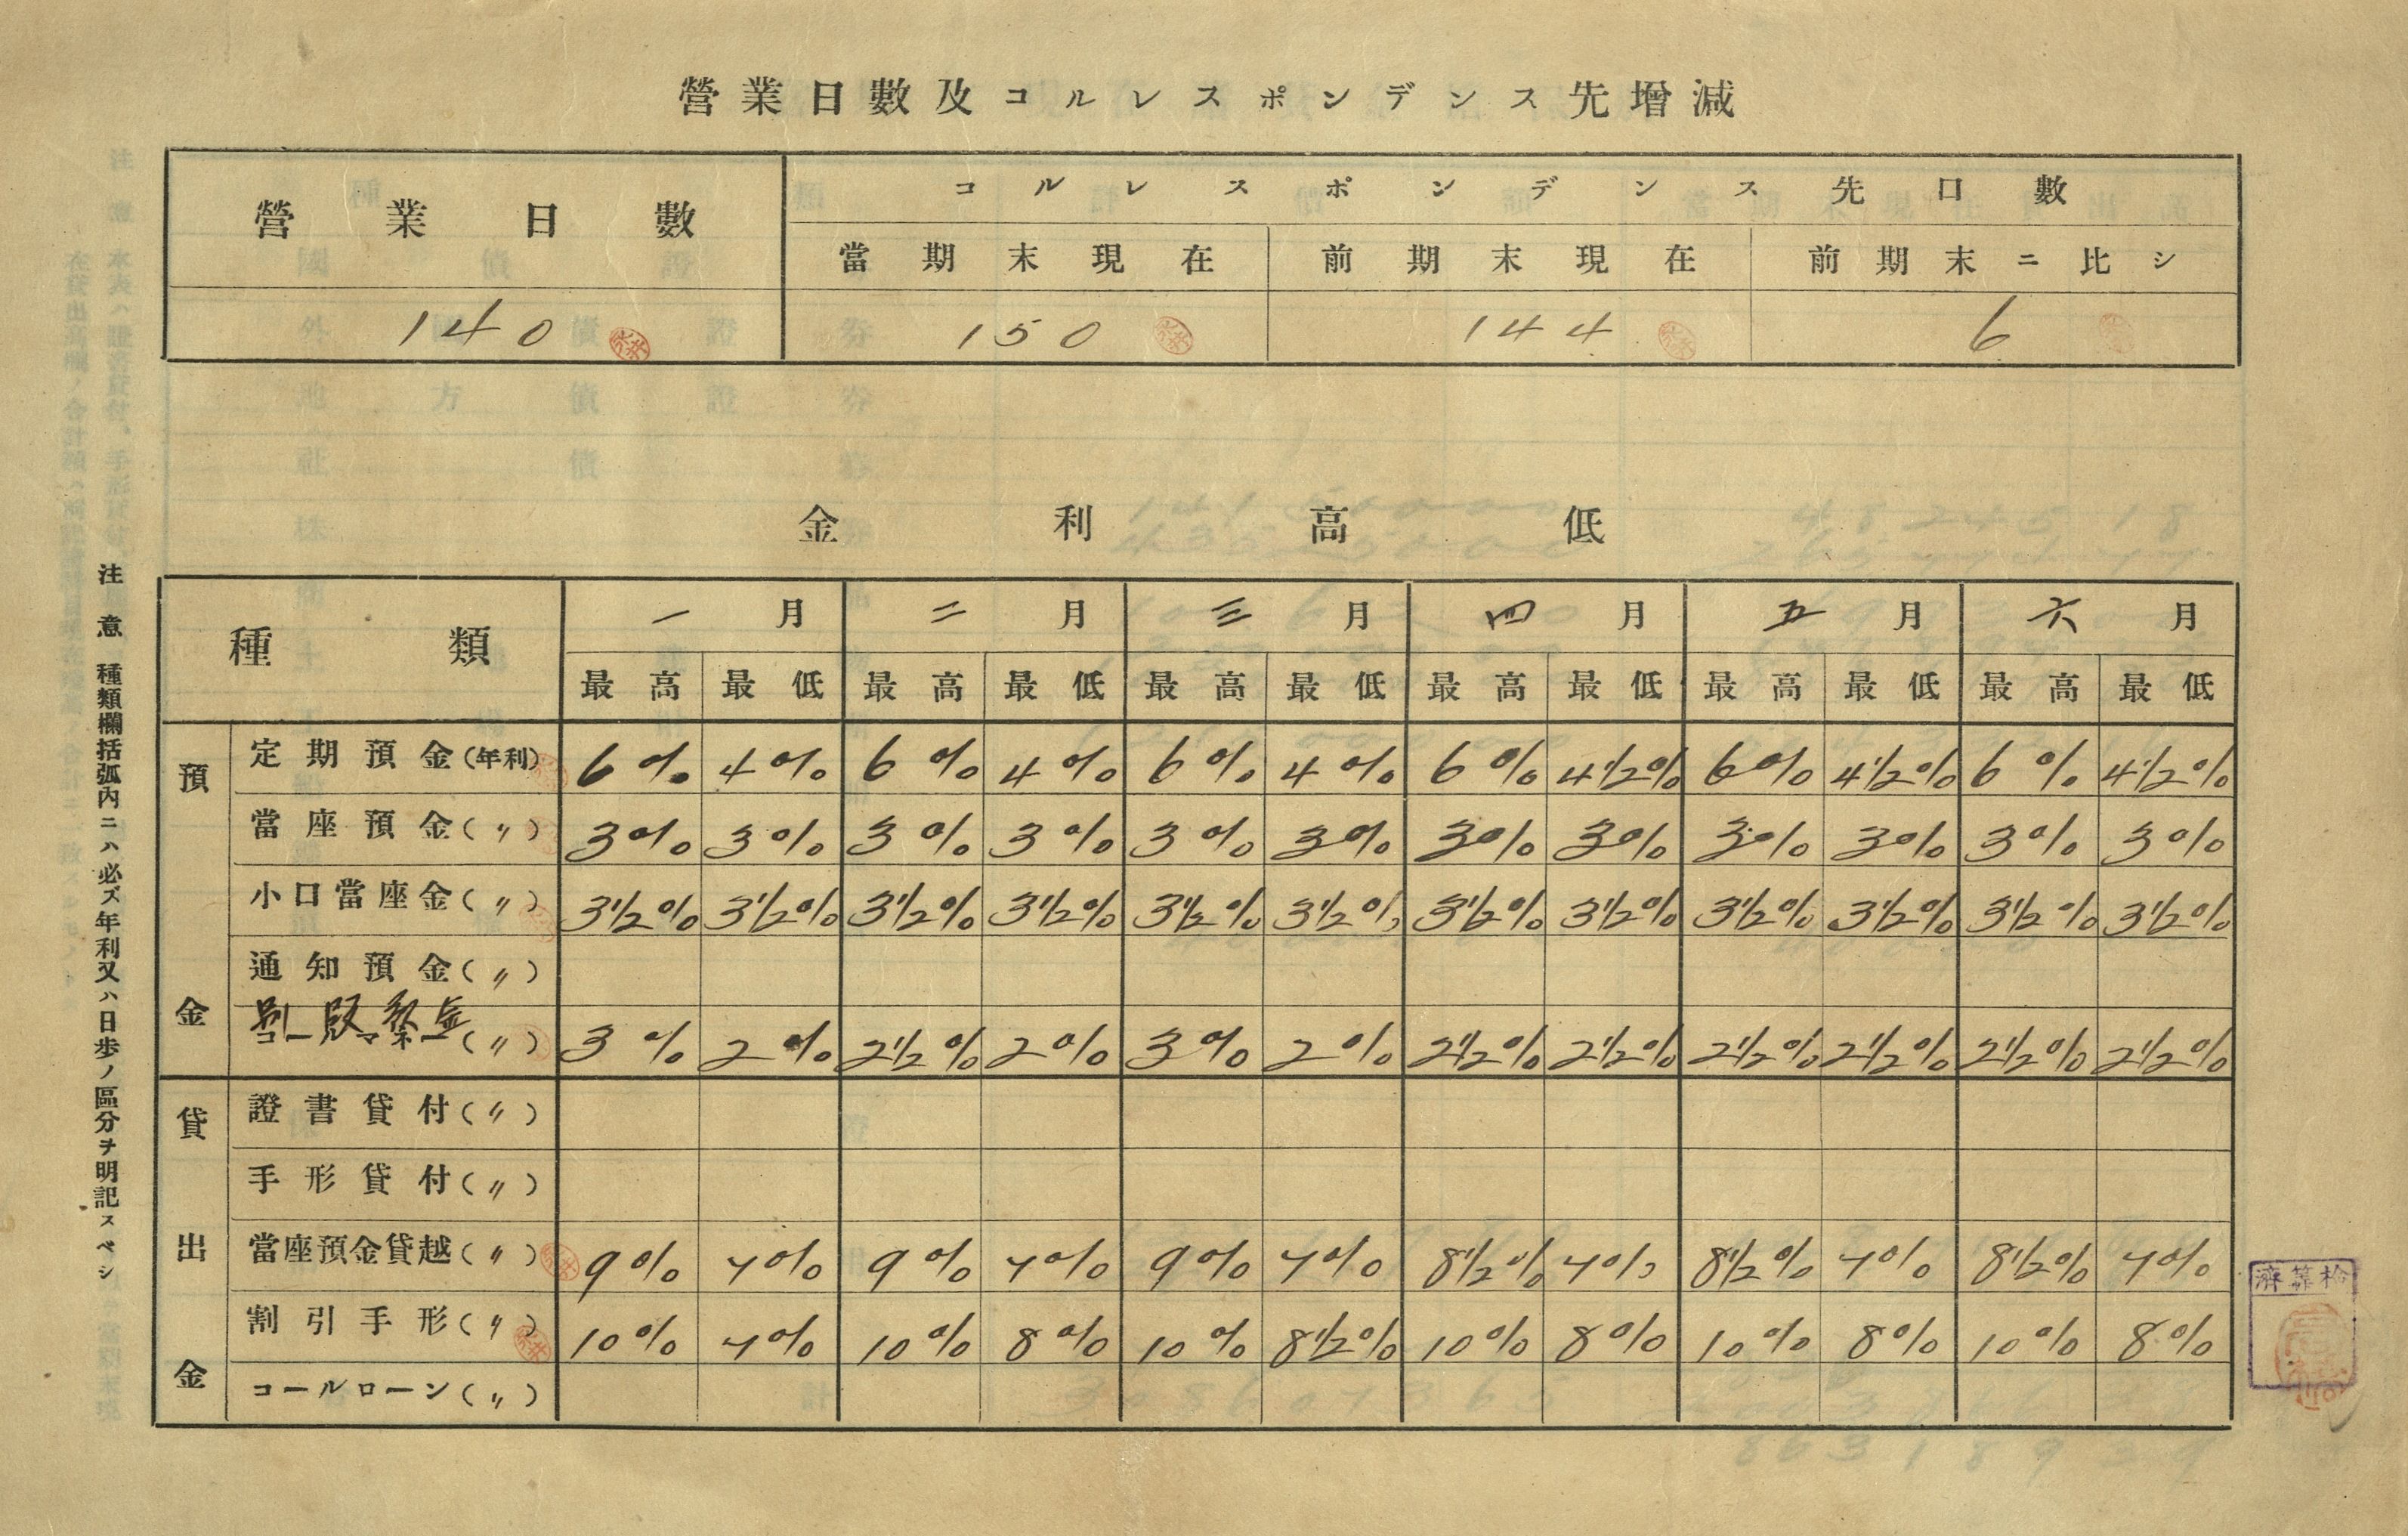 營業日數及コルレスポンデンス先增減
營業日數 コルレスポンデンス先口數
當期末現在 前期末現在 前期末ニ比シ
140 150 144 6
金利高低
種類 一月 二月 三月 四月 五月 六月
最高 最低 最高 最低 最高 最低 最高 最低 最高 最低 最高 最低
預金
定期預金(年利) 6% 4% 6% 4% 6% 4% 6% 4½% 6% 4½% 6% 4½%
當座預金(〃) 3% 3% 3% 3% 3% 3% 3% 3% 3% 3% 3% 3%
小口當座金(〃) 3½% 3½% 3½% 3½% 3½% 3½% 3½% 3½% 3½% 3½% 3½% 3½%
通知預金(〃)
別段預金
コールマネー(〃) 3% 2% 2½% 2% 3% 2% 2½% 2½% 2½% 2½% 2½% 2½%
貸出金
證書貸付(〃)
手形貸付(〃)
當座預金貸越(〃) 9% 7% 9% 7% 9% 7% 8½% 7% 8½% 7% 8½% 7%
割引手形(〃) 10% 7% 10% 8% 10% 8½% 10% 8% 10% 8% 10% 8%
コールローン(〃)
注意 種類欄括弧內ニハ必ズ年利又ハ日步ノ區分ヲ明記スベシ